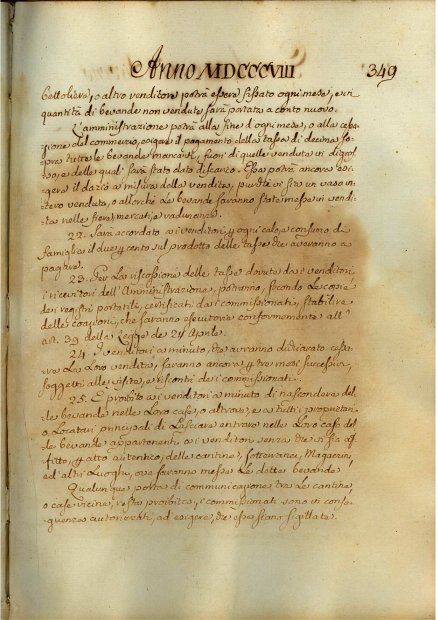 Anno MDCCCVIII 349
bettoliere, o altro venditore potrà essere fissato ogni mese, e
quantità di bevande non vendute sarà portata a conto nuovo.
L'amministrazione potrà alla fine d'ogni mese, o alla cessa-
zione del commercio, esigere il pagamento della tassa di decima so-
pra tutte le bevande mancanti, fuori di quelle vendute in
e delle quali sarà stato dato discarico. Essa potrà ancora esi-
gere il dazio a misura della vendita, purchè vi sia un vaso in-
tero venduto, o allorchè le bevande saranno state messe in vendi-
ta nelle fiere, mercati, e radunanze.
22. Sarà accordato ai venditori p ogni calo, e consumo di
famiglia il due p cento sul prodotto delle tasse che averanno a
pagare.
23. Per la riscossione delle tasse dovute dai venditori
i ricevitori dell'Amministrazione, potranno, secondo le copie
dei registri portatili, certificati dai commissionati, stabilire
delle coazioni, che saranno esecutorie conformemente all'
art. 39 della Legge de 24 Aprile.
24. I venditori a minuto, che avranno dichiarato cessa-
re la loro vendita, saranno ancora p tre mesi successivi
soggetti alle visite, e riscontri dei commissionati.
25. È proibito ai venditori a minuto di nascondere del-
le bevande nelle loro case, o altrove, e a tutti i proprietari
o locatari principali di lasciare entrare nelle loro case del-
le bevande appartenenti ai venditori senza che vi sia af-
fitto, p atto autentico, delle cantine, sotterranei, Magazzini
ed altri luoghi, ove saranno messe le dette bevande.
Qualunque porta di communicazione tra le cantine
o case vicine, resta proibita, i commissionati sono in conse-
guenza autorizzati, ad esigere, che essa siano sigillata.